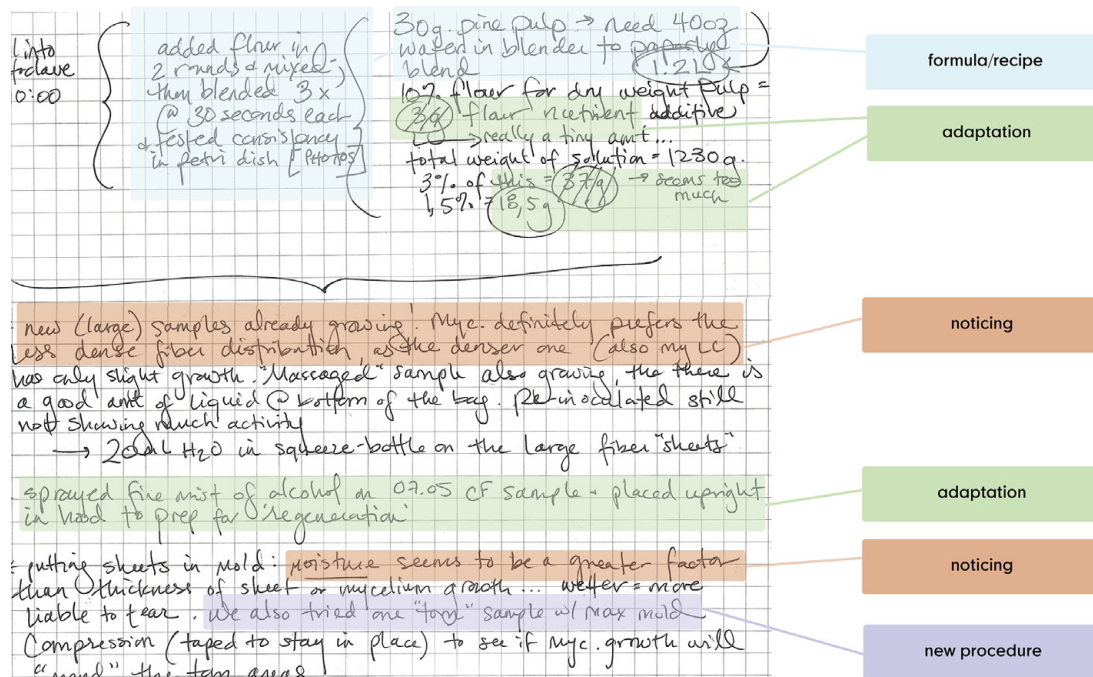 1 into
toclave
0:00
added flour in
2 rounds & mixed;
then blended 3x
@ 30 seconds each
& tested consistency
in petri dish [PHOTOS]
30g. pine pulp → need 40oz
water in blender to properly
blend
1.2L
10% flour for dry weight pulp =
3g flour nutrient additive
→ really a tiny amt...
total weight of sollution = 1230g.
3% of this = 37g → seems too
much
1,5% = 18,5g
new (large) samples already growing! Myc. definitely prefers the
less dense fiber distribution, as the denser one (also my LC)
has only slight growth. "Massaged" sample also growing, tho there is
a good amt of liquid @ bottom of the bag. Re-inoculated still
not showing much activity
→ 20mL H2O in squeeze-bottle on the large fiber "sheets"
sprayed fine mist of alcohol on 07.05 CF sample + placed upright
in hood to prep for 'regeneration'
putting sheets in mold: moisture seems to be a greater factor
than thickness of sheet or mycelium growth... wetter = more
liable to tear. We also tried one "torn" sample w/ max mold
compression (taped to stay in place) to see if myc. growth will
"mend" the torn areas
formula/recipe
adaptation
noticing
adaptation
noticing
new procedure